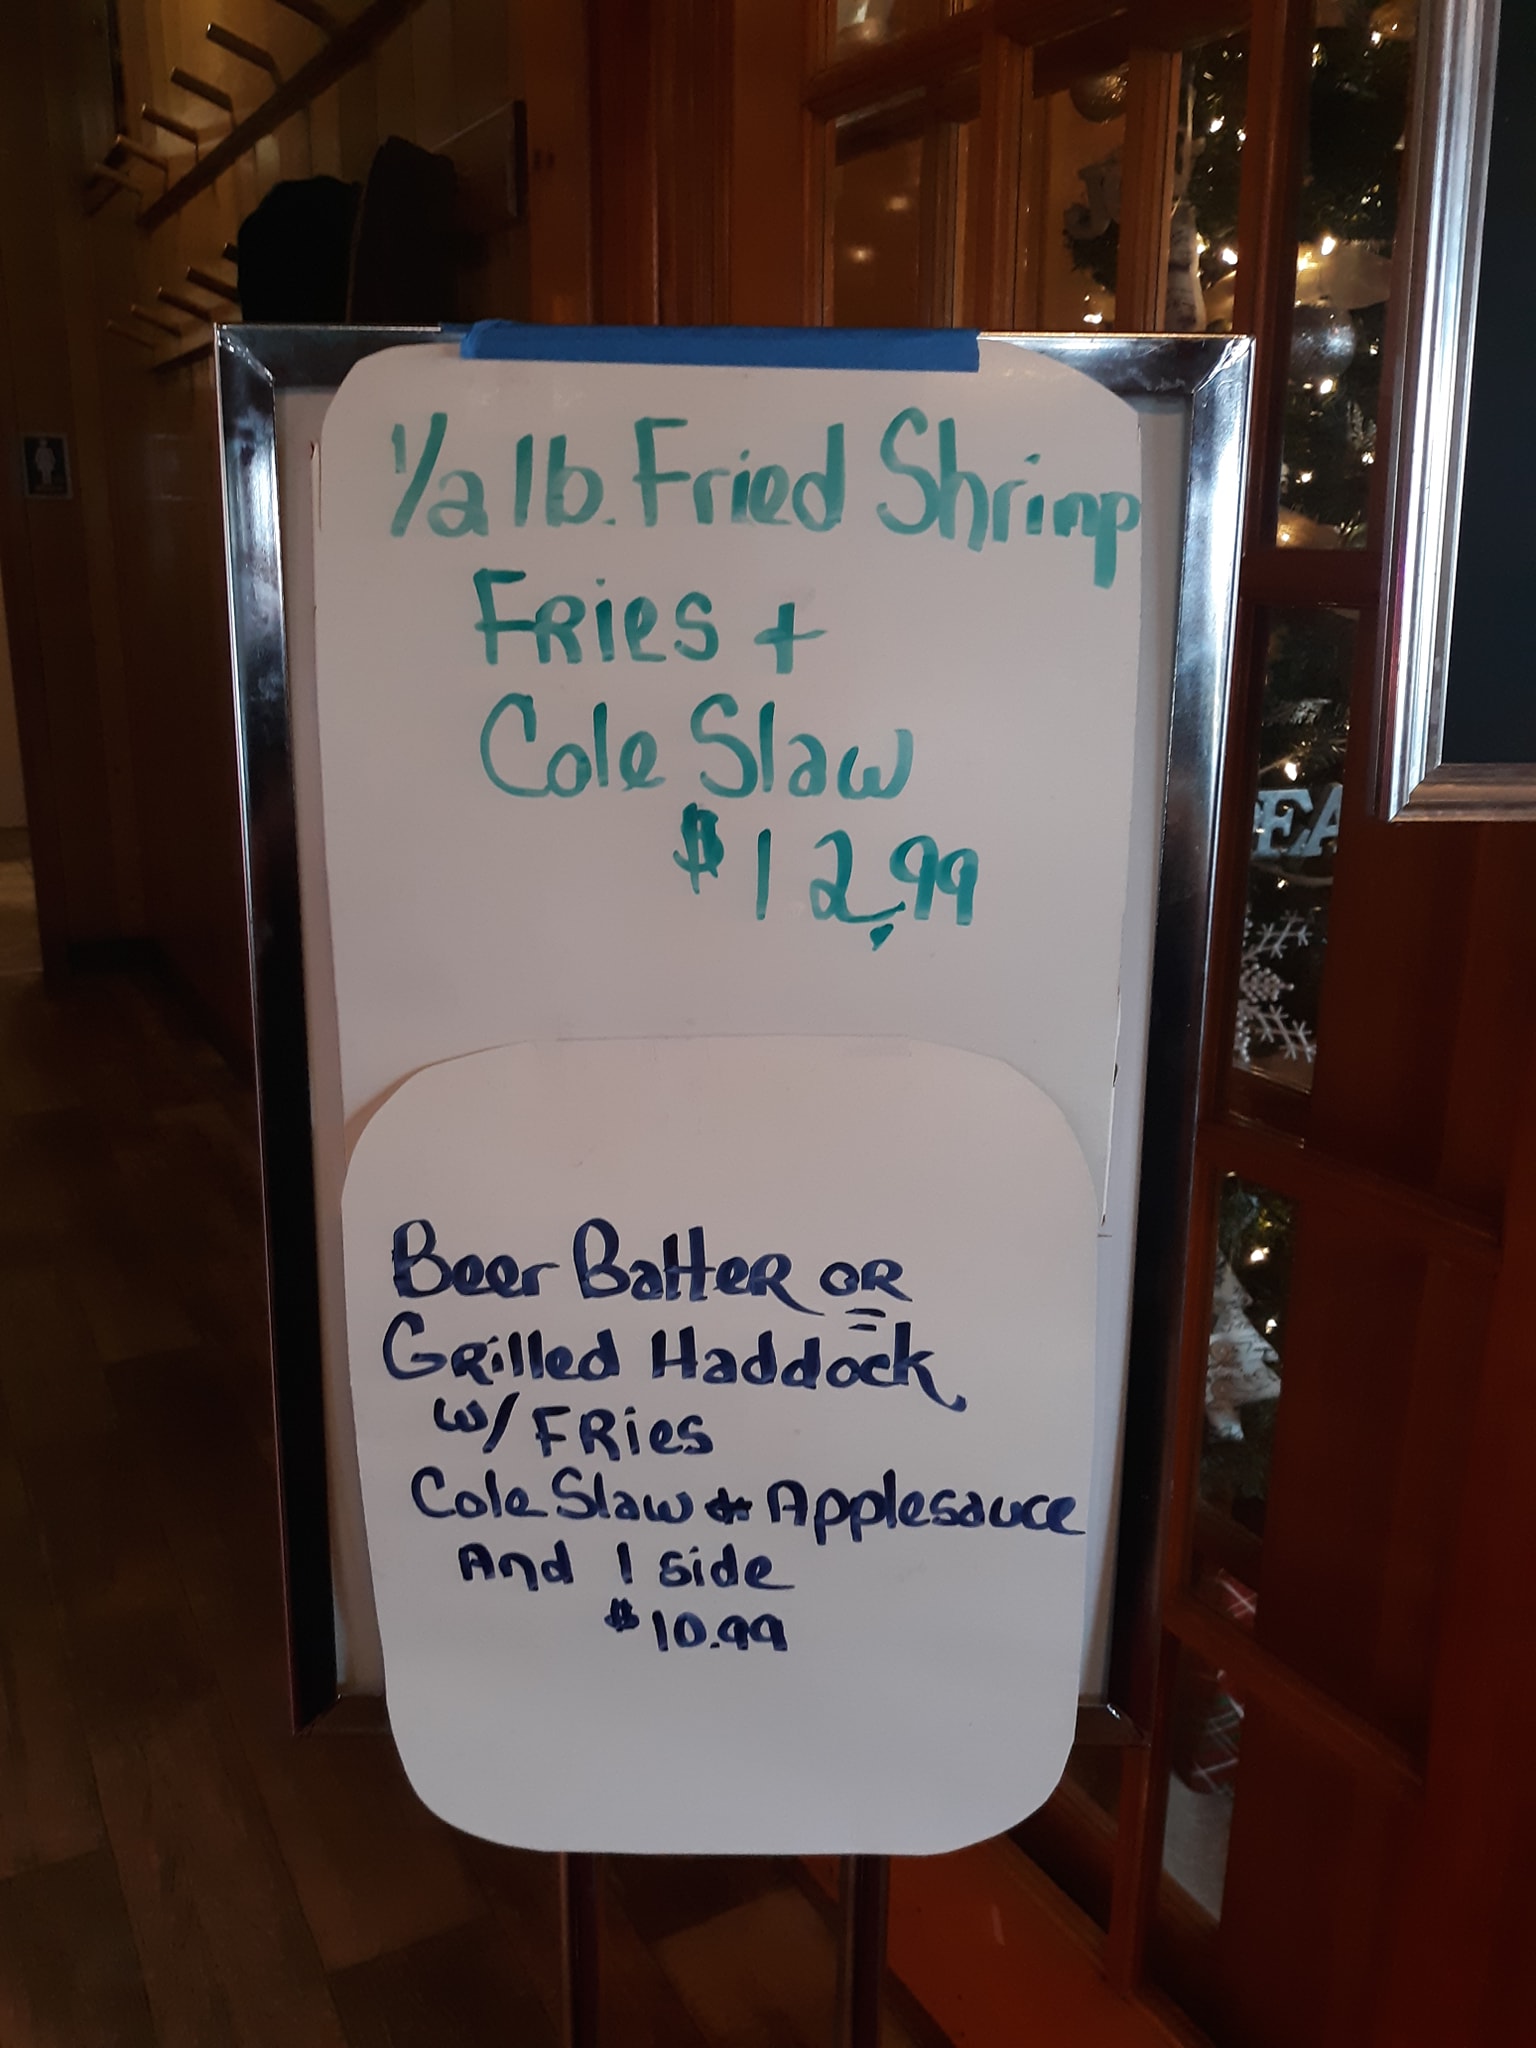 1/2 lb. Fried Shrimp
FRies +
Cole Slaw
$12.99
Beer BatteR OR
GRilled Haddock
w/ FRies
Cole Slaw & Applesauce
And 1 side
$10.99
EA